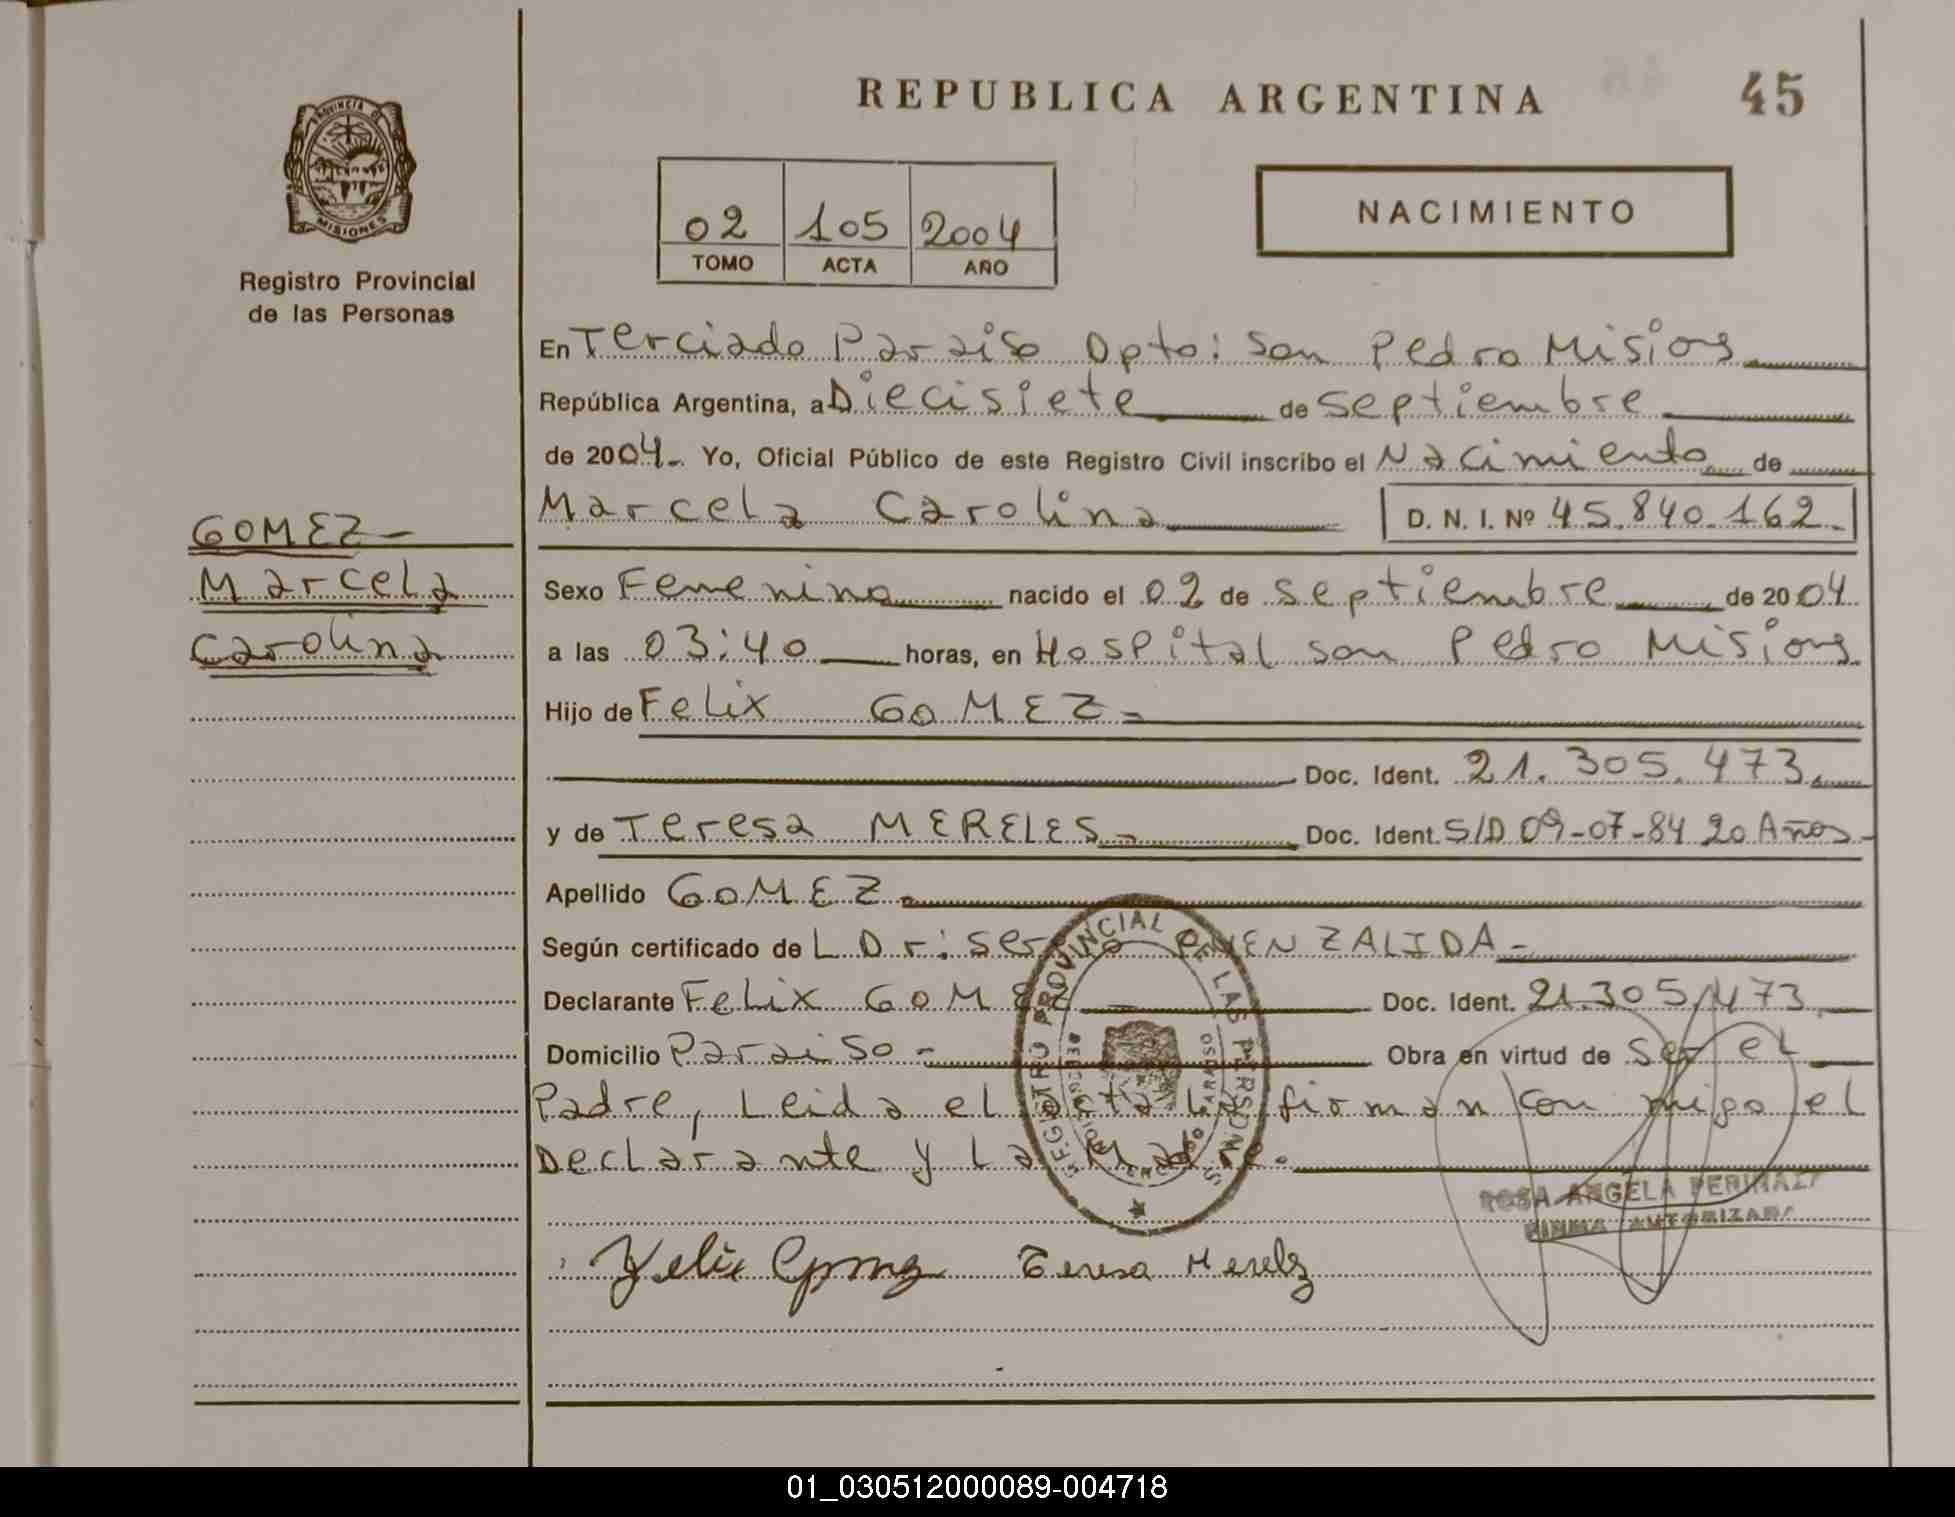 REPUBLICA ARGENTINA
45
PROVINCIA DE
MISIONES
Registro Provincial
de las Personas
NACIMIENTO
02 105 2004
TOMO ACTA AÑO
En Terciado Paraiso Dpto: San Pedro Misions
República Argentina, a Diecisiete de septiembre
de 2004- Yo, Oficial Público de este Registro Civil inscribo el Nacimiento de
Marcela Carolina D. N. I. Nº 45.840.162-
GOMEZ-
Marcela
Carolina
Sexo Femenino nacido el 02 de septiembre de 2004
a las 03:40 horas, en Hospital san Pedro Misions
Hijo de Felix GOMEZ-
Doc. Ident. 21.305.473.
y de Teresa MERELES- Doc. Ident. S/D 09-07-84 20 Años-
Apellido GOMEZ-
Según certificado de L.Dr: Ser
Declarante Felix GOMEZ Doc. Ident. 21.305.473
Domicilio Paraiso- Obra en virtud de ser el
Padre, Leida el firman con migo el
Declarante y La Madre.
REGISTRO PROVINCIAL DE LAS PERSONAS
ROSA ANGELA
FIRMA AUTORIZADA
Felix Gomez Teresa Merelez
01_030512000089-004718